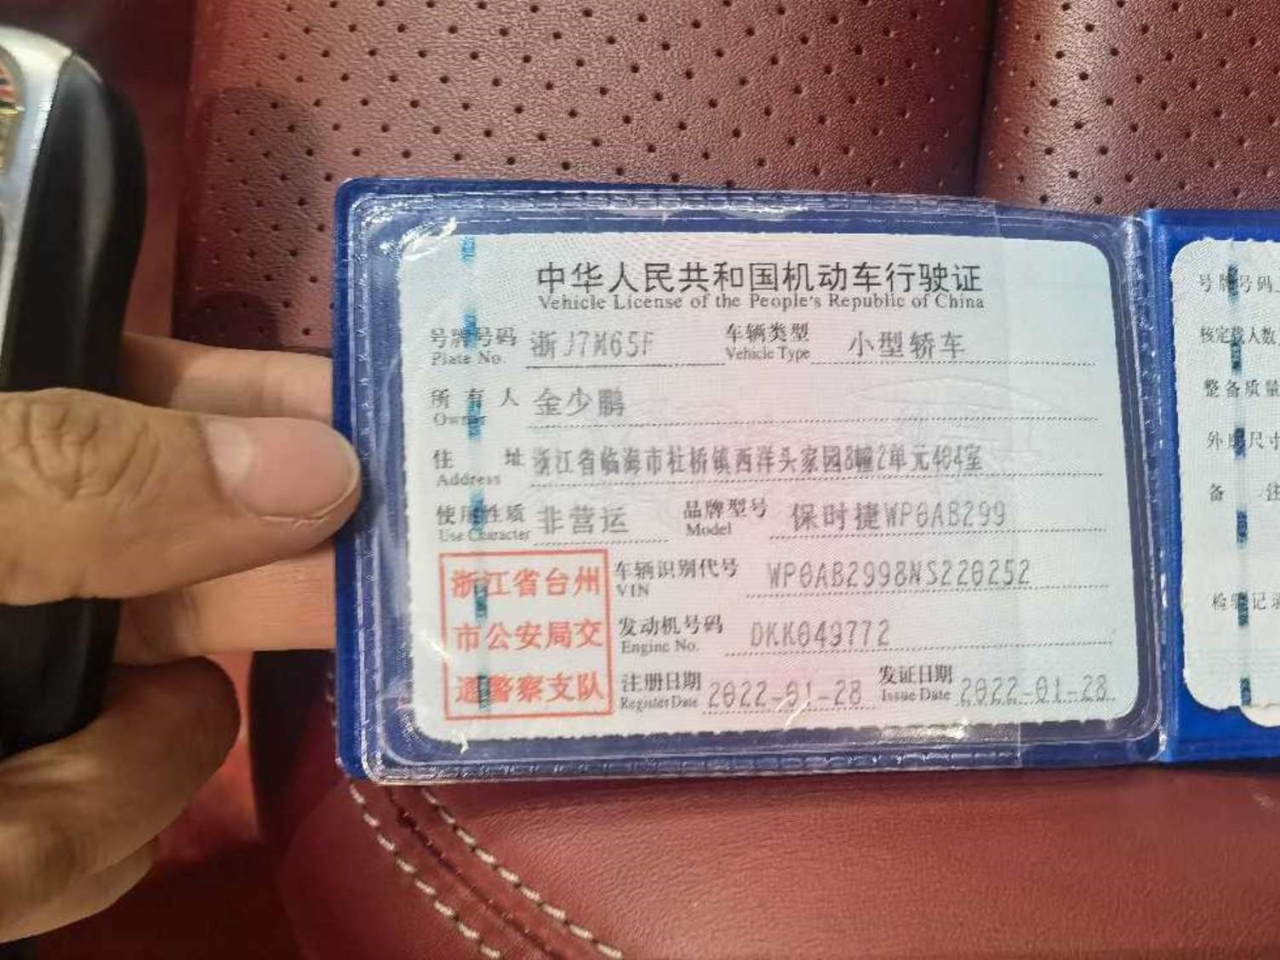 中华人民共和国机动车行驶证
Vehicle License of the People's Republic of China
号牌号码 浙J7M65F 车辆类型 小型轿车
Plate No. Vehicle Type
所有人 金少鹏
Owner
住址 浙江省临海市杜桥镇西洋头家园8幢2单元404室
Address
使用性质 非营运 品牌型号 保时捷WP0AB299
Use Character Model
浙江省台州 车辆识别代号 WP0AB2998NS220252
VIN
市公安局交 发动机号码 DKK049772
Engine No.
通警察支队 注册日期 2022-01-28 发证日期 2022-01-28
Register Date Issue Date
号牌号码
核定载人数
整备质量
外廓尺寸
备 注
检验记录